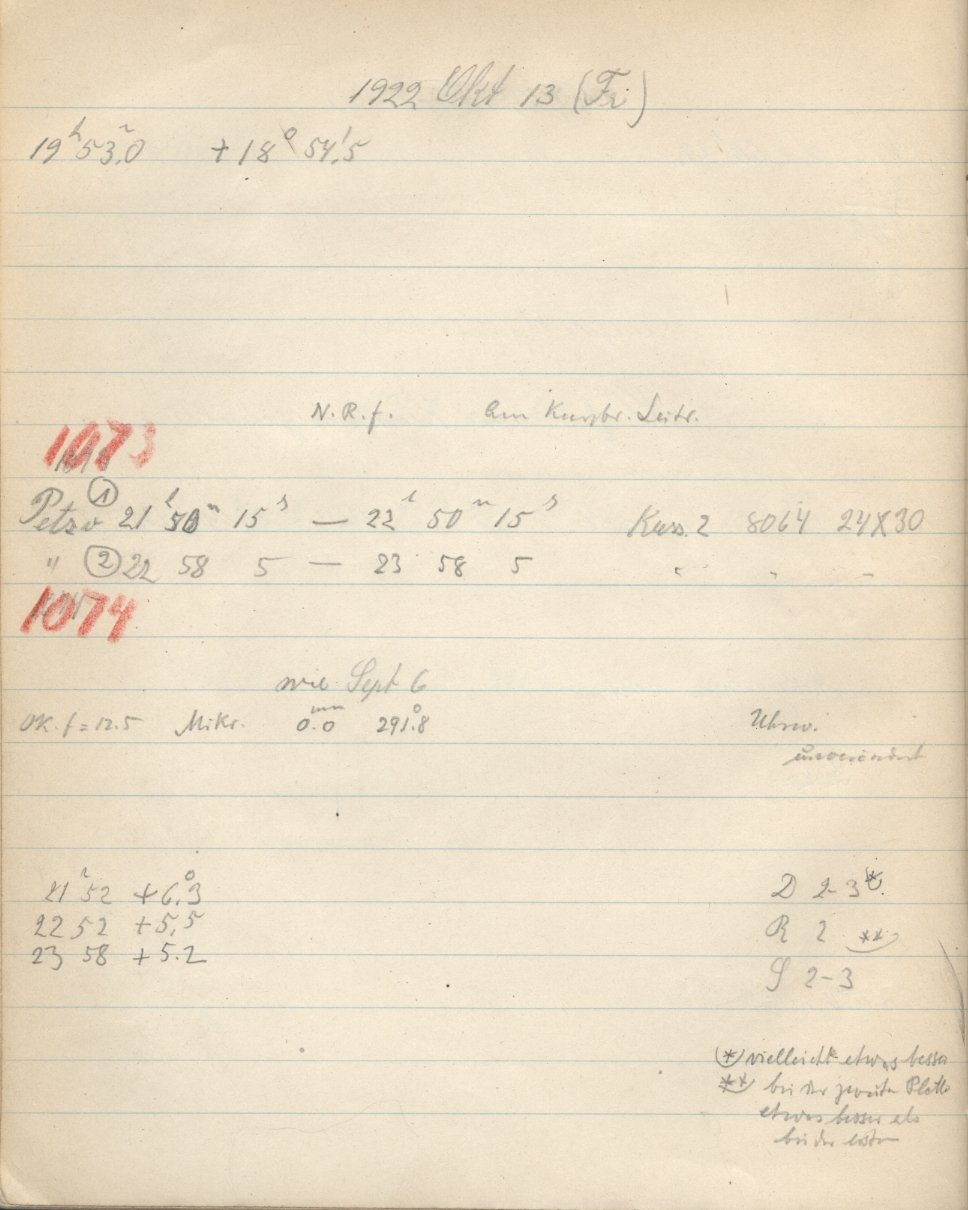 1922 Okt 13 (Fr)
19ʰ 53ᵐ,0 +18° 54',5
N. R. f. Am Kurzbr. Leitr.
1073
Petzv ① 21ʰ 50ᵐ 15ˢ — 22ʰ 50ᵐ 15ˢ Kass. 2 8064 24X30
" ② 22 58 5 — 23 58 5 " " "
1074
wie Sept 6
Ok. f = 12.5 Mikr. 0.0ᵐᵐ 291.8° Uhrw.
unverändert
21ʰ 52 +6,°3 D 2-3 (*)
22 52 +5,5 R 2 (**)
23 58 +5.2 S 2-3
(*) vielleicht etwas besser
(**) bei der zweiten Platte
etwas besser als
bei der ersten